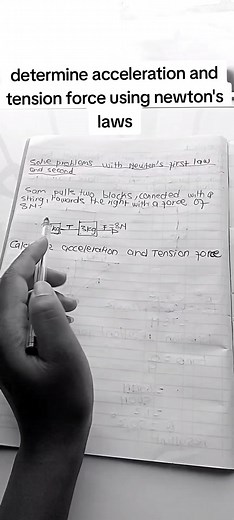 determine acceleration and
tension force using newton's
laws
Solve problems with Newton's first law
and second
Sam pulls two blocks, connected with a
string, towards the right with a force of
3N.
kg T 3kg F=3N
acceleration and Tension force